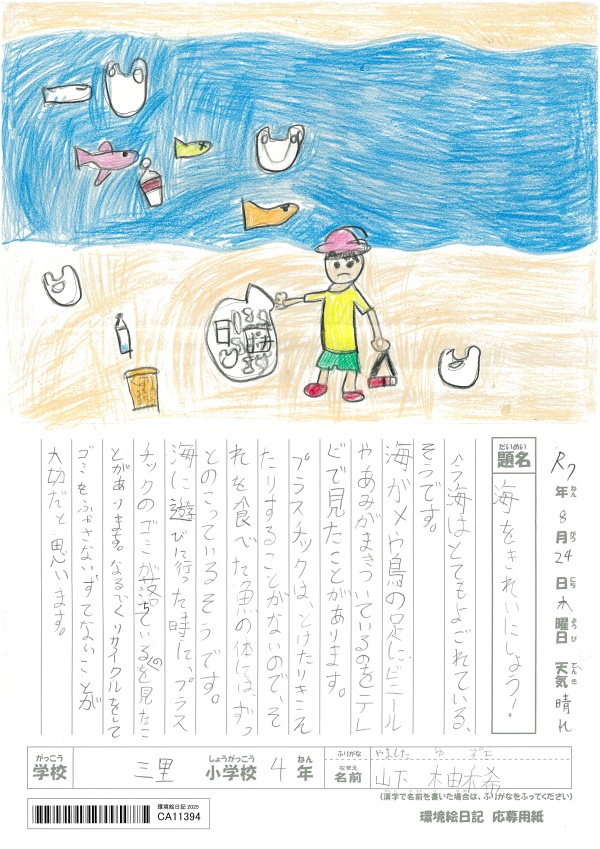 R7年8月24日水曜日 天気 晴れ
ねん がつ にち ようび てんき
だいめい
題名
海をきれいにしよう!
今海はとてもよごれている、
そうです。
海がメや鳥の足にビニール
やあみがまきついているのをテレ
ビで見たことがあります。
プラスチックは、とけたりきえ
たりすることがないので、そ
れを食べた魚の体には、ずっ
とのこっているそうです。
海に遊びに行った時に、プラス
チックのゴミが落ちているのを見たこ
とがあります。なるべくリサイクルをして
ゴミをふやさないすてないことが
大切だと思います。
がっこう しょうがっこう ねん
学校 三里 小学校 4年
ふりがな やました ゆずき
なまえ
名前 山下 柚木希
(漢字で名前を書いた場合は、ふりがなをふってください)
環境絵日記 2025
CA11394
環境絵日記 応募用紙